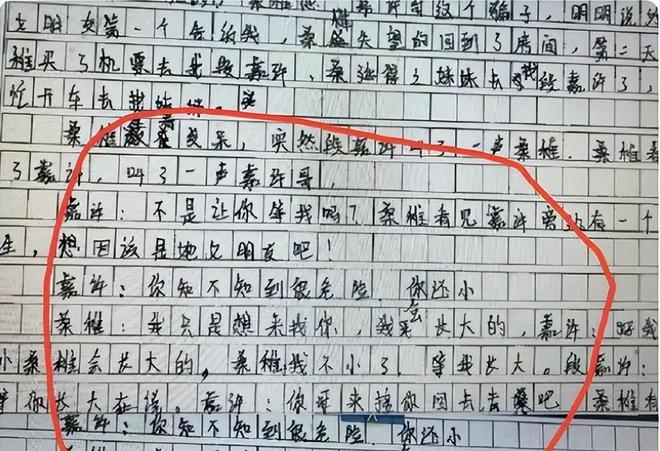 嘉许这个骗子，明明说
女朋友第一个告诉我，桑稚失望的回到了房间，第二天
稚买了机票去找段嘉许，桑延得之妹妹去找段嘉许了，
忙开车去找妹妹。
桑稚 突然段嘉许叫了一声桑稚．桑稚看
了嘉许，叫了一声嘉许哥，
嘉许：不是让你等我吗？桑稚看见嘉许旁边有一个
生，想因该是她女朋友吧！
嘉许：你知不知到很危险．你还小
桑稚：我只是想来找你，我会长大的，嘉许：好我
小桑稚会长大的，桑稚我不小了，等我长大。段嘉许：
等你长大在说。嘉许：你哥来接你回去去吧．桑稚看
嘉许：你知不知到很危险．你还小